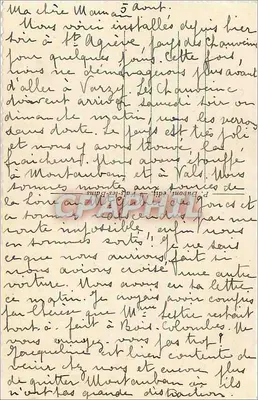 Ma chère Maman 5 Aout.
Nous voici installés depuis hier
soir à St Agrève, pays des Chauveins
pour quelques jours. Cette fois,
nous ne déménagerons plus avant
d'aller à Varzy. Les Chauveinc
doivent arriver samedi soir ou
dimanche matin nous les verrons
sans doute. Le pays est très joli
et nous y avons trouvé, la
fraîcheur. Nous avons étouffé
à Montauban et à Vals. Nous
sommes sources de
la Loire
CPAPHIL
a
route impossible enfin nous
en sommes sortis!! je ne sais
ce que nous aurions fait si
nous avions croisé une autre
voiture. Nous avons eu ta lettre
ce matin. J'avais compris
par Thérèse que Me restait
tout à fait à Bois-Colombes. Ne
vous ennuyez vous pas trop?
Jacqueline est bien contente de
venir chez nous et encore plus
de quitter Montauban où ils
n'ont pas grande distraction.